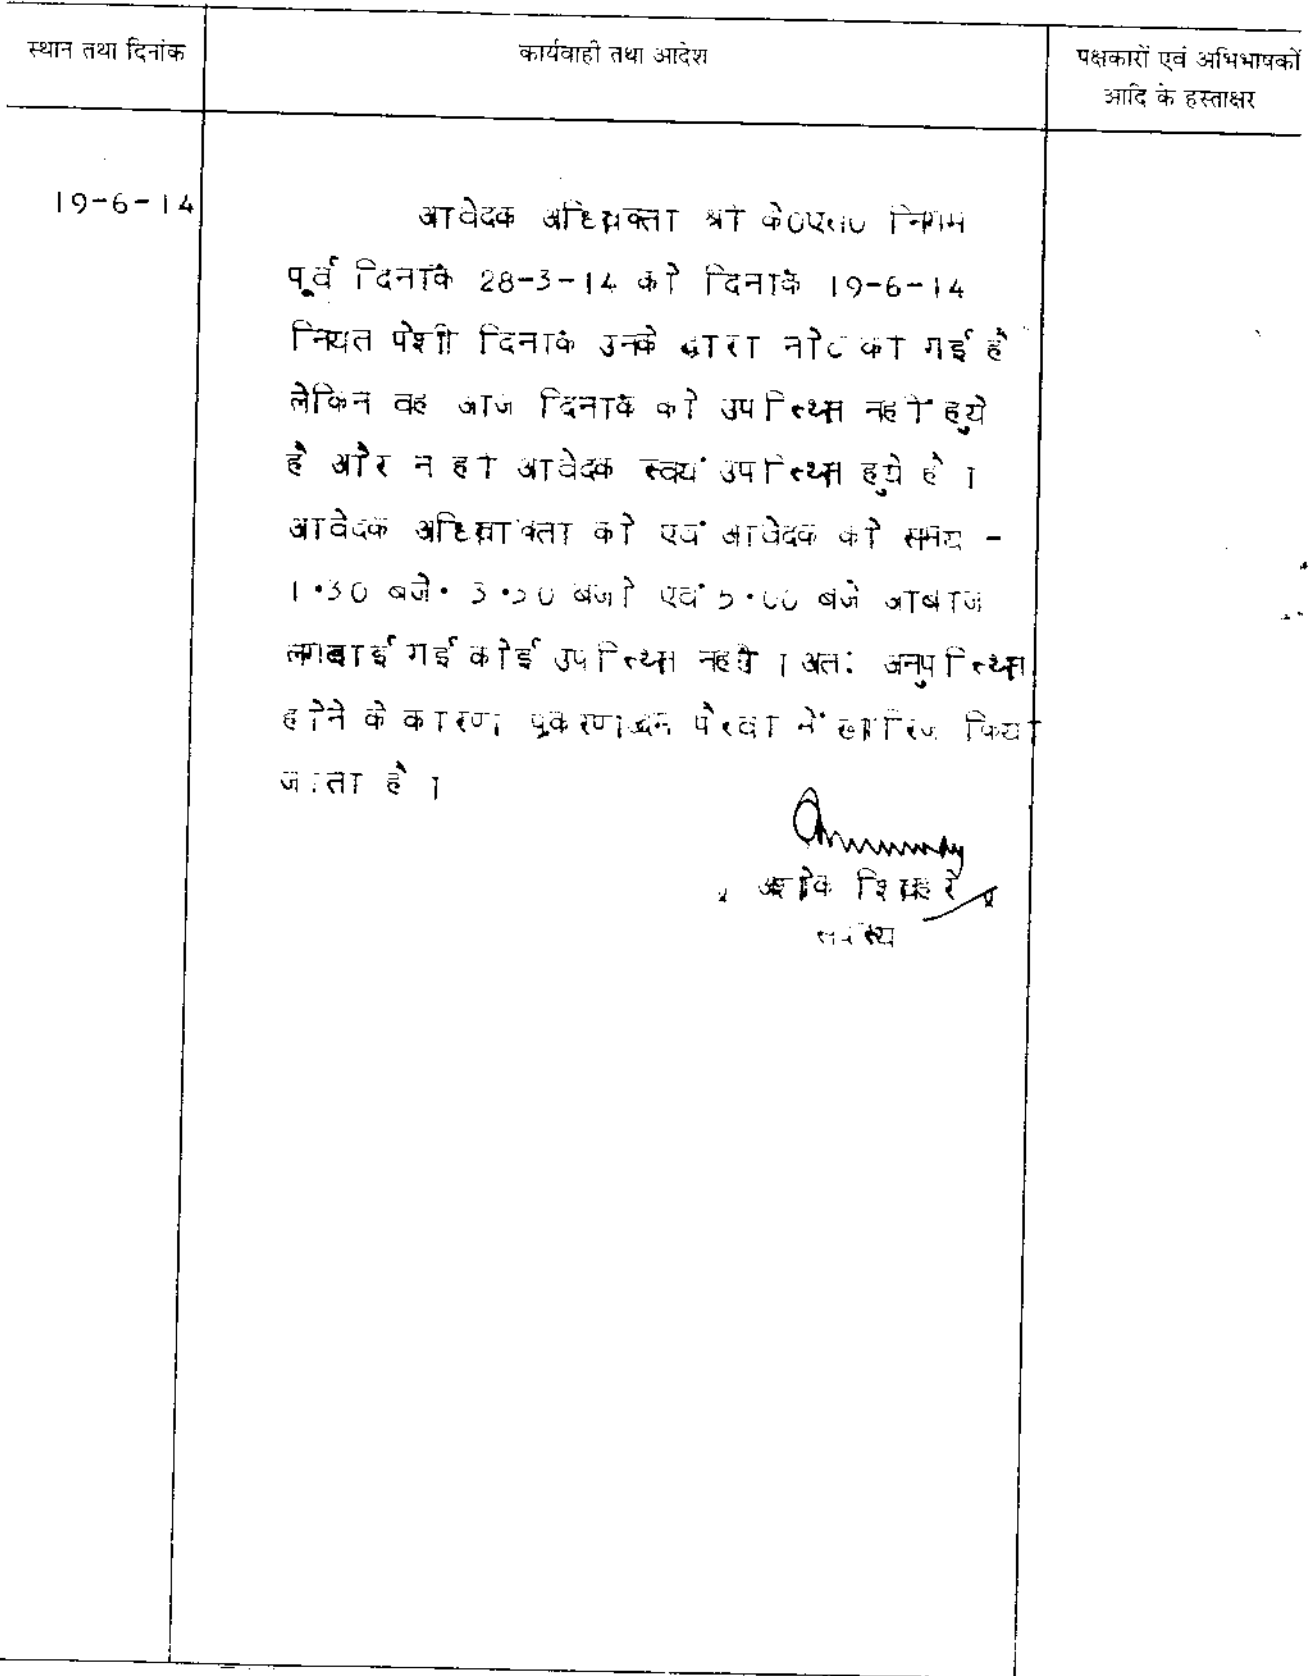 स्थान तथा दिनांक
कार्यवाही तथा आदेश
पक्षकारों एवं अभिभाषकों
आदि के हस्ताक्षर
19-6-14
आवेदक अधिवक्ता श्री के0एल0 निगम
पूर्व दिनांक 28-3-14 को दिनांक 19-6-14
नियत पेशी दिनांक उनके द्वारा नोट की गई है
लेकिन वह आज दिनांक को उपस्थित नहीं हुये
है और न ही आवेदक स्वयं उपस्थित हुये है ।
आवेदक अधिवक्ता को एवं आवेदक को समय -
1.30 बजे. 3.30 बजे एवं 5.00 बजे आबाज
लगबाई गई कोई उपस्थित नहीं । अतः अनुपस्थित
होने के कारण प्रकरण अदम पैरवी में खारिज किया
जाता है ।
अशोक शिवहरे
सदस्य